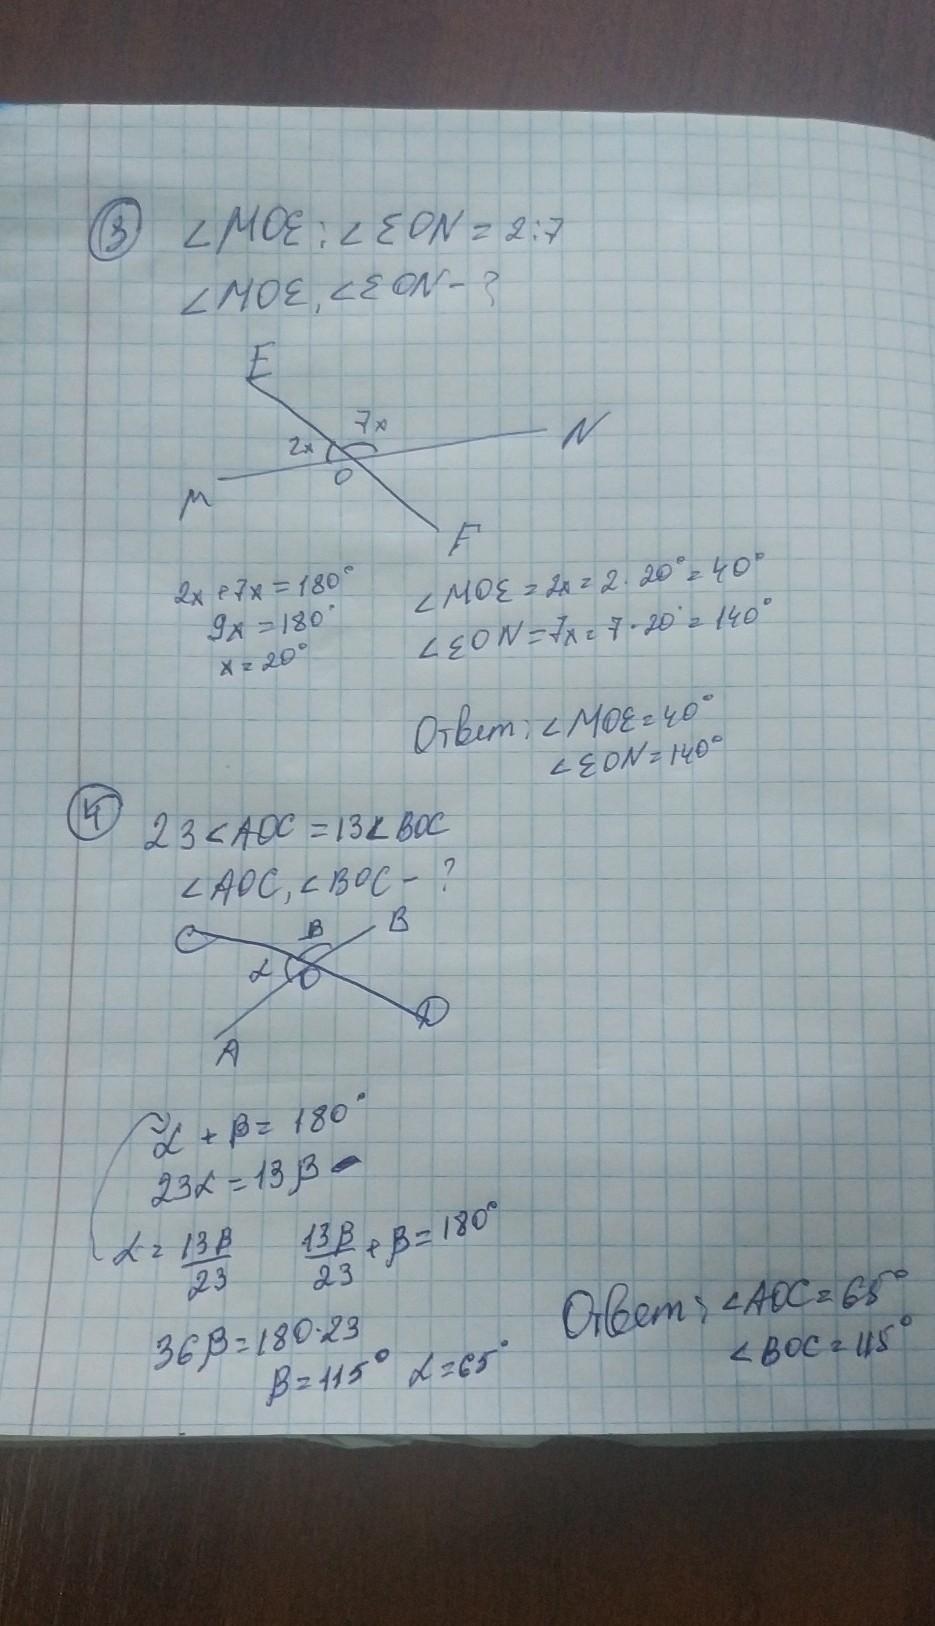 3 <MOE : <EON = 2:7
<MOE, <EON - ?
E
7x
2x
N
O
M
F
2x + 7x = 180°
9x = 180°
x = 20°
<MOE = 2x = 2 · 20° = 40°
<EON = 7x = 7 · 20° = 140°
Ответ: <MOE = 40°
<EON = 140°
4 23 <AOC = 13 <BOC
<AOC, <BOC - ?
C
β
B
α
O
D
A
α + β = 180°
23α = 13β
α = 13β/23 13β/23 + β = 180°
36β = 180·23
β = 115° α = 65°
Ответ: <AOC = 65°
<BOC = 115°